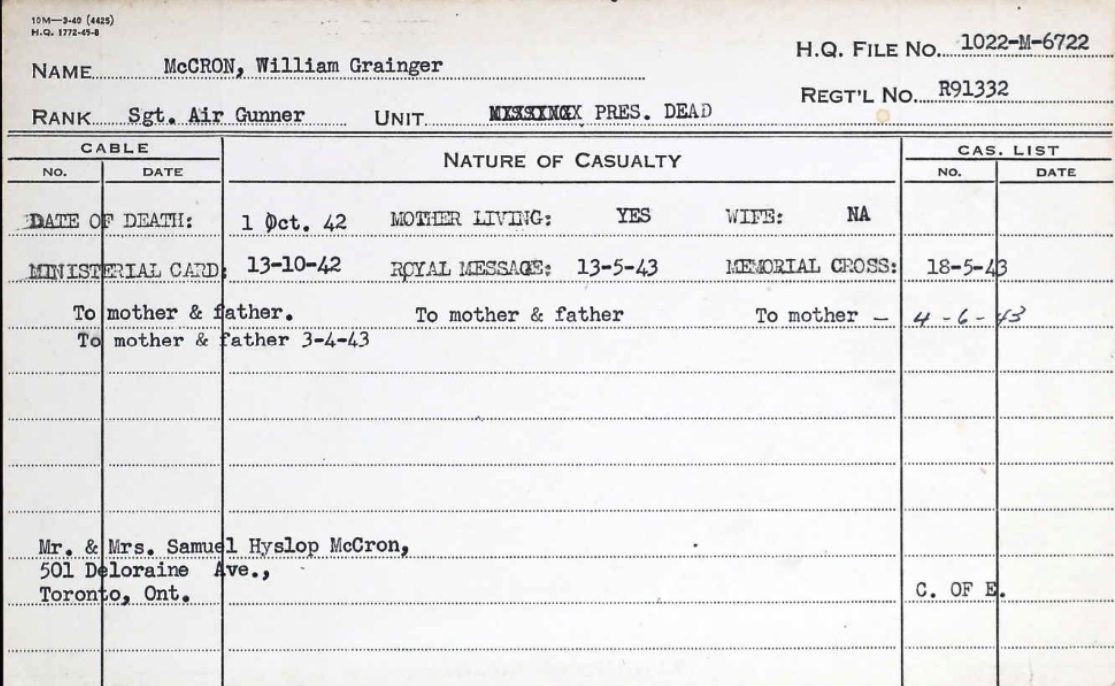 10M—3-40 (4425)
H.Q. 1772-45-8
H.Q. FILE NO. 1022-M-6722
NAME McCRON, William Grainger
REGT'L NO. R91332
RANK Sgt. Air Gunner UNIT MISSING PRES. DEAD
CABLE NATURE OF CASUALTY CAS. LIST
NO. DATE NO. DATE
DATE OF DEATH: 1 Oct. 42 MOTHER LIVING: YES WIFE: NA
MINISTERIAL CARD: 13-10-42 ROYAL MESSAGE: 13-5-43 MEMORIAL CROSS: 18-5-43
To mother & father. To mother & father To mother — 4-6-43
To mother & father 3-4-43
Mr. & Mrs. Samuel Hyslop McCron,
501 Deloraine Ave.,
Toronto, Ont. C. OF E.